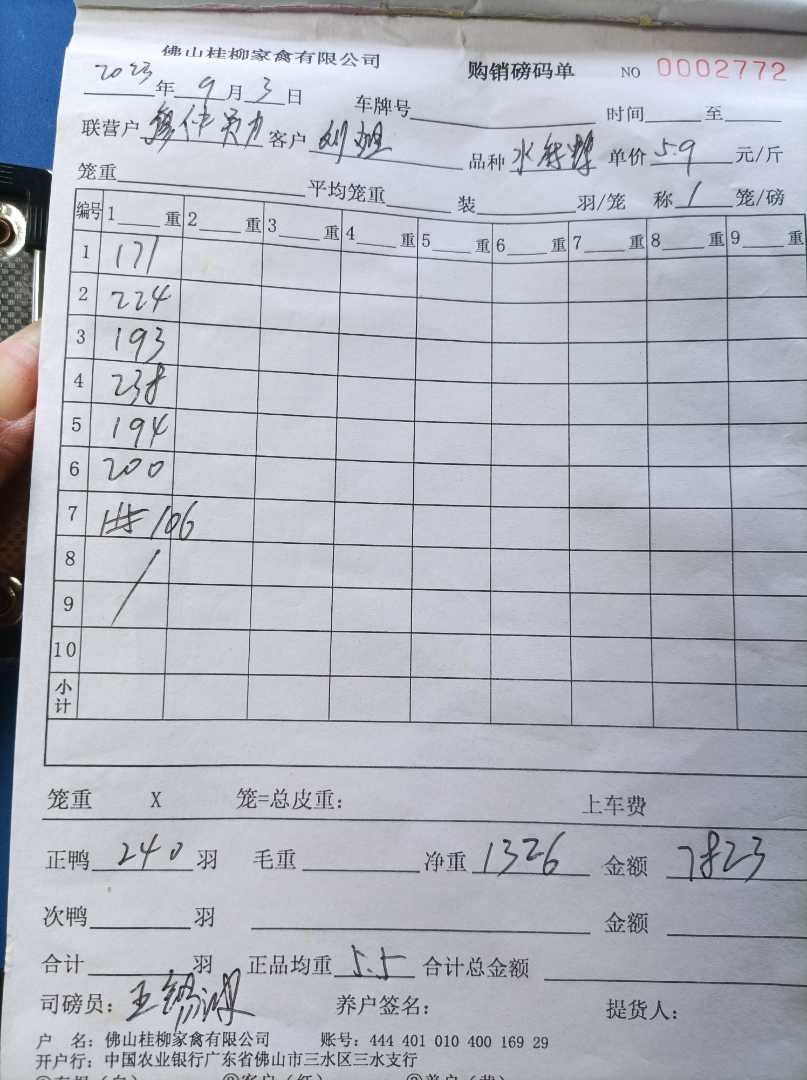 佛山桂柳家禽有限公司 购销磅码单 NO 0002772
2023年9月3日 车牌号 时间 至
联营户 客户 刘 品种 水 单价 5.9 元/斤
笼重 平均笼重 装 羽/笼 称 1 笼/磅
编号 1 重 2 重 3 重 4 重 5 重 6 重 7 重 8 重 9 重
1 171
2 224
3 193
4 238
5 194
6 200
7 共106
8
9
10
小计
笼重 X 笼=总皮重: 上车费
正鸭 240 羽 毛重 净重 1326 金额 7823
次鸭 羽 金额
合计 羽 正品均重 5.5 合计总金额
司磅员: 王 养户签名: 提货人:
户 名: 佛山桂柳家禽有限公司 账号: 444 401 010 400 169 29
开户行: 中国农业银行广东省佛山市三水区三水支行